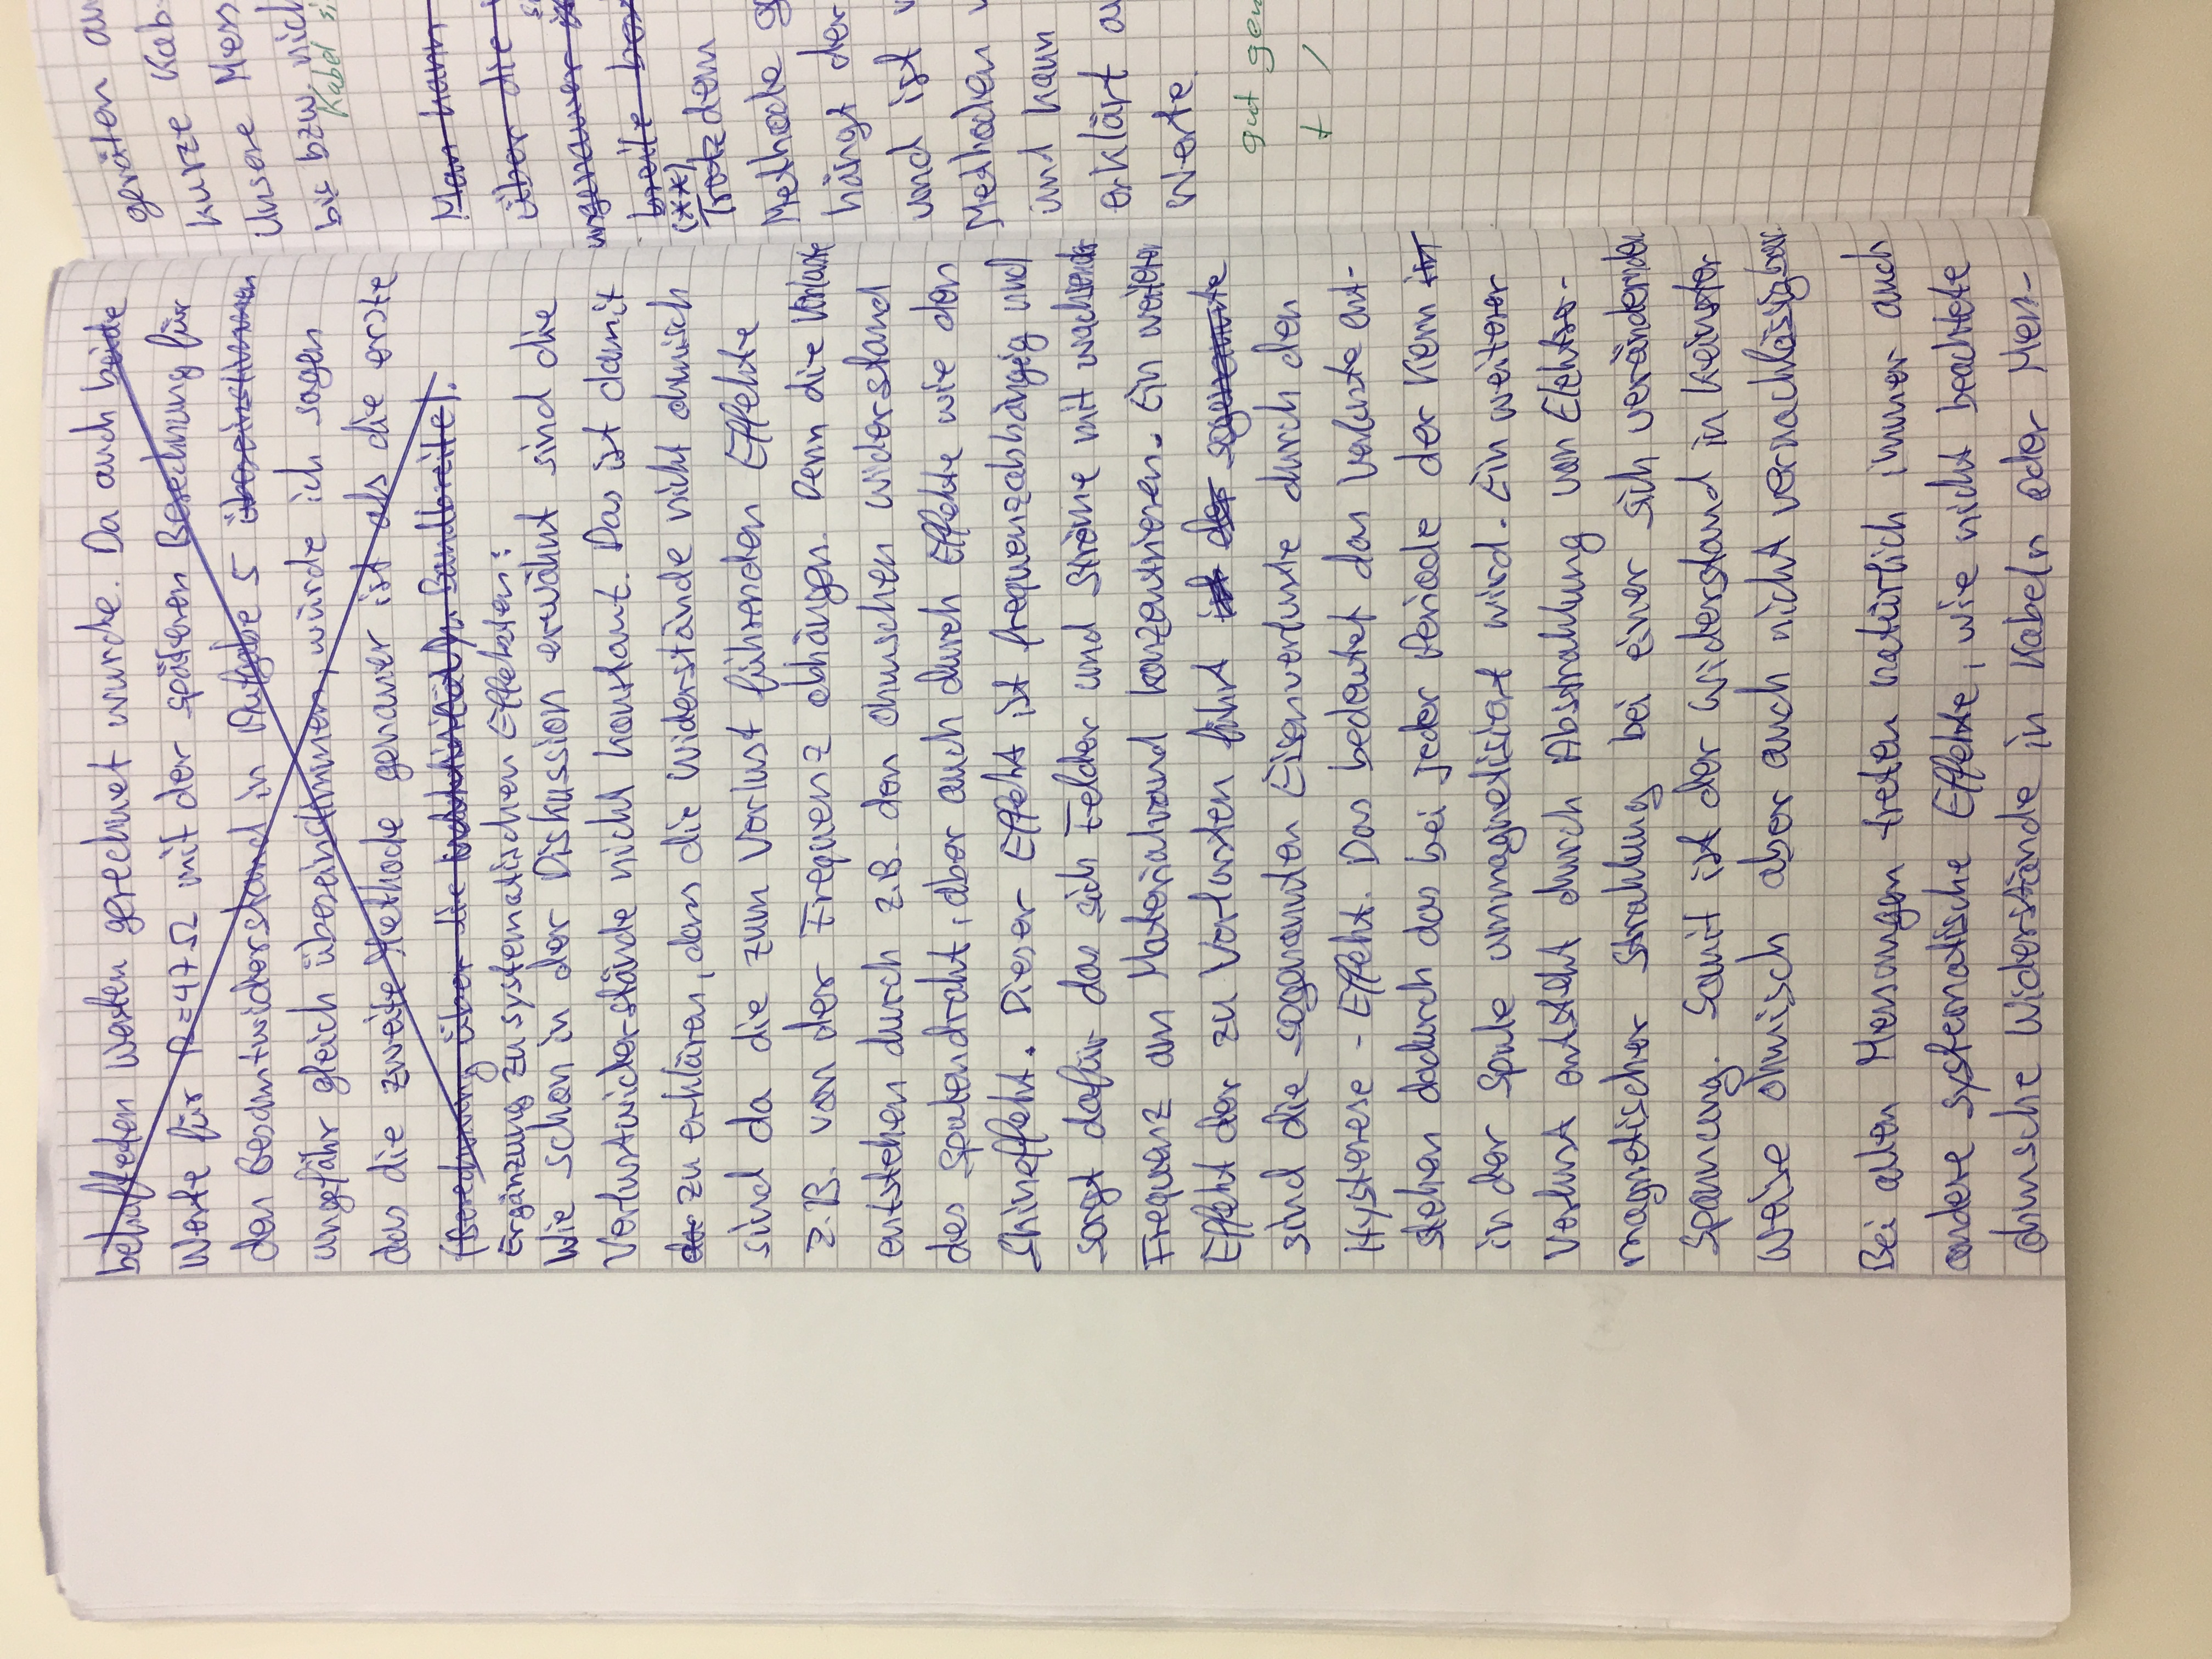 behafteten Werten gerechnet wurde. Da auch beide
Werte für R=47Ω mit der späteren Berechnung für
den Gesamtwiderstand in Aufgabe 5 übereinstimmen
ungefähr gleich übereinstimmen, würde ich sagen
das die zweite Methode genauer ist als die erste
(Berechnung über die Bandbreite).
Ergänzung zu systematischen Effekten:
Wie schon in der Diskussion erwähnt sind die
Verlustwiderstände nicht konstant. Das ist damit
zu erklären, dass die Widerstände nicht ohmisch
sind da die zum Verlust führenden Effekte
z.B. von der Frequenz abhängen. Denn die Verluste
entstehen durch z.B. den ohmschen Widerstand
des Spulendraht, aber auch durch Effekte wie den
Skineffekt. Dieser Effekt ist frequenzabhängig und
sorgt dafür das sich Felder und Ströme mit wachsender
Frequenz am Materialrand konzentrieren. Ein weiterer
Effekt der zu Verlusten führt ist der sogenannte
sind die sogenannten Eisenverluste durch den
Hysterese-Effekt. Das bedeutet das Verluste ent-
stehen dadurch das bei jeder Periode der Kern im
in der Spule ummagnetisiert wird. Ein weiterer
Verlust entsteht durch Abstrahlung von Elektro-
magnetischer Strahlung bei einer sich verändernden
Spannung. Somit ist der Widerstand in keinster
weise ohmisch aber auch nicht vernachlässigbar.
Bei allen Messungen treten natürlich immer auch
andere systematische Effekte, wie nicht beachtete
ohmsche Widerstände in Kabeln oder Mess-
geräten au
kurze Kab
Unsere Mess
bis bzw. nich
Kabel si
Man kann
über die
ungenauer
breite
(**)
Trotzdem
Methode g
hängt der
und ist
Methoden
und kann
erklärt au
Werte.
gut gem
+